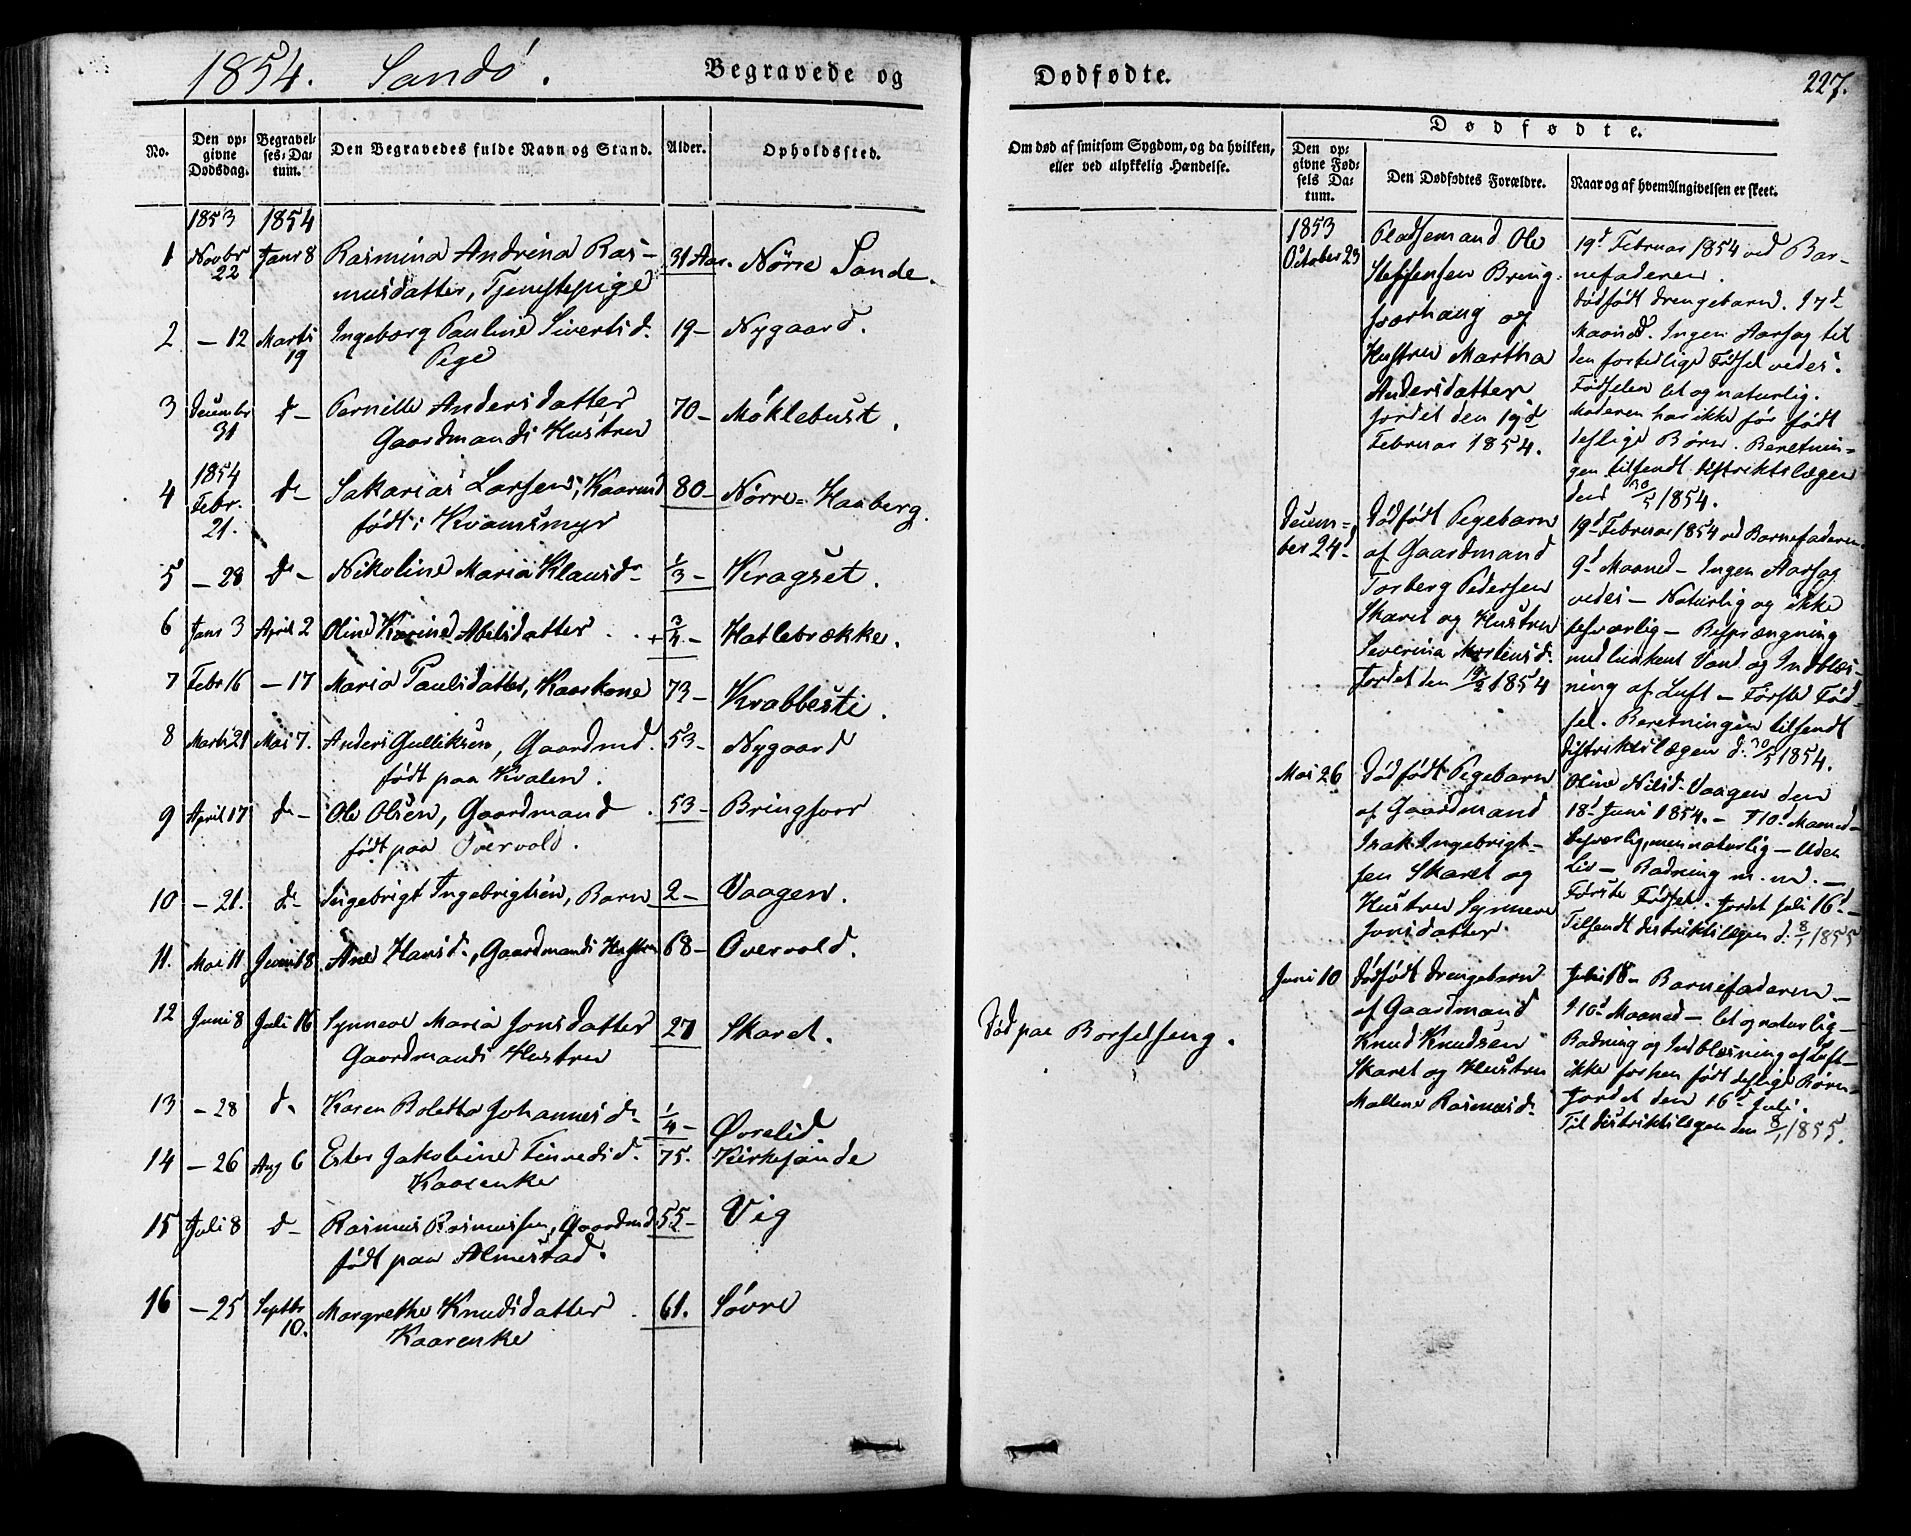 1854. Sandö. Begravede og Dødfødte. 227.
No.
Den opgivne Dødsdag.
Begravelses-Datum.
Den Begravedes fulde Navn og Stand.
Alder.
Opholdssted.
Om død af smitsom Sygdom, og da hvilken, eller ved ulykkelig Hændelse.
Dødfødte.
Den opgivne Fødsels Datum.
Den Dødfødtes Forældre.
Naar og af hvem Angivelsen er skeet.
1853 1854
1 Novbr 22 Janr 8 Rasmina Andrina Ras- 31 Aar. Nörre Sande.
musdatter, Tjenestepige
2 — 12 Marts 19 Ingeborg Pauline Sivertsd. 19 — Nygaard.
Pige
3 Decembr 31 d— Pernille Andersdatter 70 — Möklebust.
Gaardmands Hustru
1854
4 Febr. 21. d— Sakarias Larsen, Kaarmd 80 — Nörre-Haaberg.
född i Kvamsmyr
5 — 28 d— Nikoline Maria Klausd. 1/3 — Kragset.
6 Janr 3 April 2 Oline Karine Abelsdatter + 3/4 — Hatlebrække.
7 Febr 16 — 17 Maria Paulsdatter, Kaarkone 73 — Krabbesti.
8 Marts 21 Mai 7. Anders Gulliksen, Gaardmd. 53 — Nygaard
født paa Kvalen.
9 April 17 d— Ole Olsen, Gaardmand. 53 — Bringsvor
født paa Overvold.
10 — 21. d— Ingebrigt Ingebrigtsen, Barn 2 — Vaagen.
11. Mai 11 Juni 18 Ane Hansd., Gaardmands Hustru 68 — Overvold.
12 Juni 8 Juli 16 Synneve Maria Jonsdatter 27 Skaret. Död paa Barselseng.
Gaardmands Hustru
13 — 28 d— Karen Boletta Johannesd. 1/4 — Øvrelid
14 — 26 Aug 6 Ester Jakobine Finnedsd. 75. Kirkesande
Kaarenke
15 Juli 8 d— Rasmus Rasmussen, Gaardmd 55 — Vig
född paa Almestad.
16 — 25 Septbr 10. Margrethe Knudsdatter. 61. Sövre
Kaarenke
1853
October 23
Pladsemand Ole
Steffensen Bring-
sværhaug og
Hustru Martha
Andersdatter
jordet den 19d
Februar 1854.
19d Februar 1854 ved Bar-
nefaderen.
Dödfödt Drengebarn. I 7d
Maaned. Ingen Aarsag til
den fortidlige Födsel vedes.
Födselen let og naturlig.
Moderen har ikke før født
deslige Børn. Beretnin-
gen tilsendt Distriktslægen
den 30/5 1854.
Decem-
ber 24d
Dödfödt Pigebarn
af Gaardmand
Torberg Pedersen
Skaret og Hustru
Severina Mortensd.
Jordet den 19/2 1854
19d Februar 1854 ved Barnefaderen.
9d Maaned — Ingen Aarsag
vedes — Naturlig og ikke
besværlig — Besprængning
med lunkent Vand og Indblæs-
ning af Luft — Første Fød-
sel. Beretningen tilsendt
Distriktslægen d. 30/5 1854.
Mai 26
Dödfödt Pigebarn
af Gaardmand
Isak Ingebrigt-
sen Skaret og
Hustru Synneve
Jonsdatter.
Oline Nilsd. Vaagen den
18d Juni 1854. — I 10d Maaned —
besværlig, men naturlig — Uden
Liv — Badning m. m. —
Første Födsel. Jordet Juli 16d —
Tilsendt Distriktslægen d. 8/1 1855
Juni 10
Dödfödt Drengebarn
af Gaardmand
Knud Knudsen
Skaret og Hustru
Maltene Rasmusd.
Juli 18 — Barnefaderen —
I 10d Maaned — let og naturlig —
Badning og Indblæsning af Luft —
ikke forhen født deslige Børn —
Jordet den 16d Juli.
Til Distriktslægen den 8/1 1855.